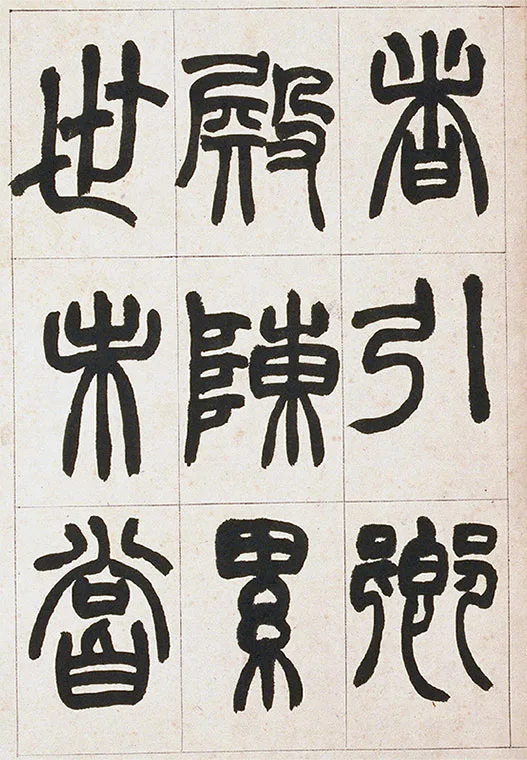 者引鄉
殿陳累
世未嘗